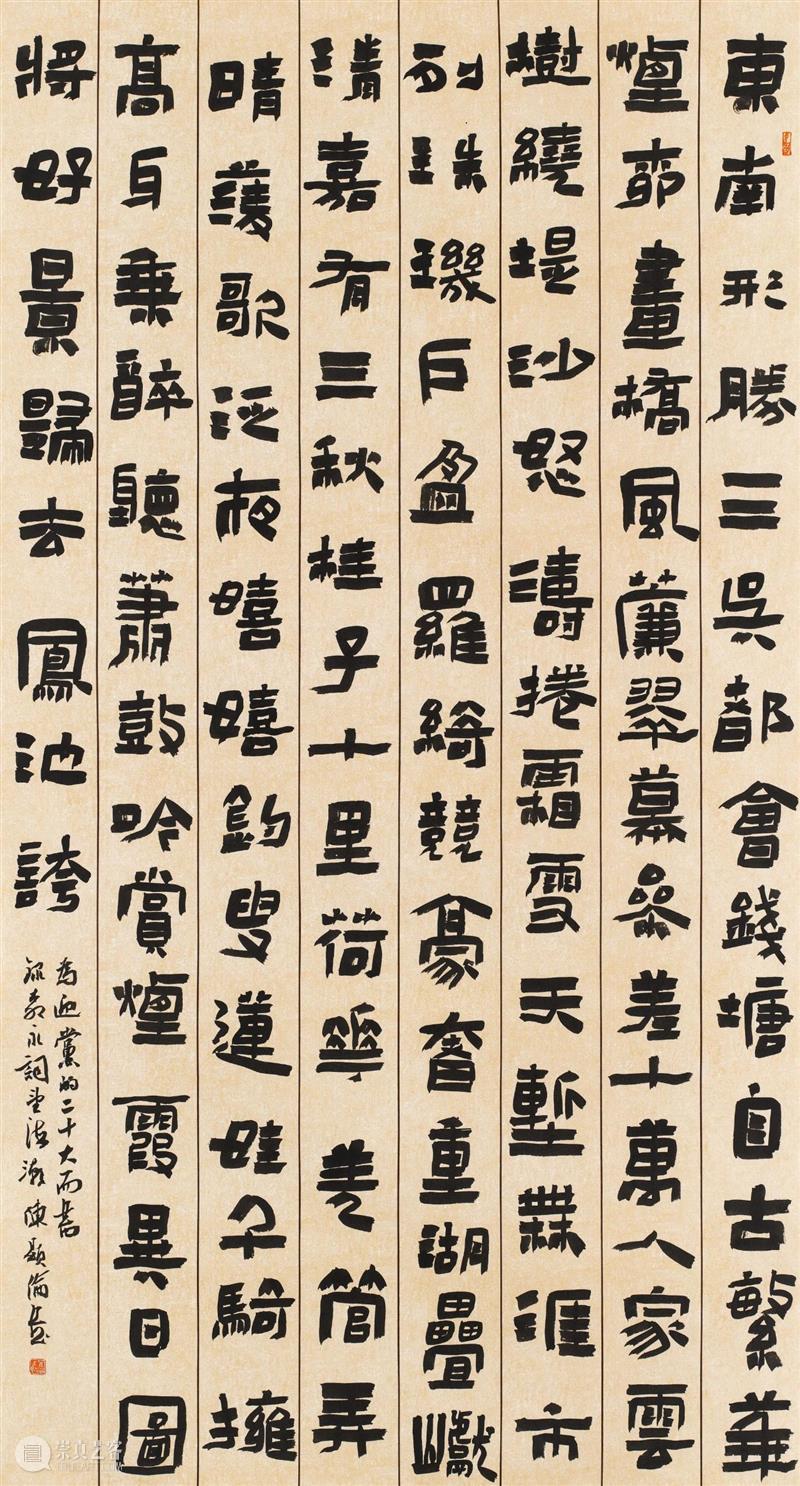 東南形勝三吳都會錢塘自古繁華
煙柳畫橋風簾翠幕參差十萬人家雲
樹繞堤沙怒濤捲霜雪天塹無涯市
列珠璣戶盈羅綺競豪奢重湖疊巘
清嘉有三秋桂子十里荷花羌管弄
晴菱歌泛夜嬉嬉釣叟蓮娃千騎擁
高牙乘醉聽簫鼓吟賞煙霞異日圖
將好景歸去鳳池誇
為迎黨的二十大而書
錄柳永詞望海潮陳顯倫
崇真艺客